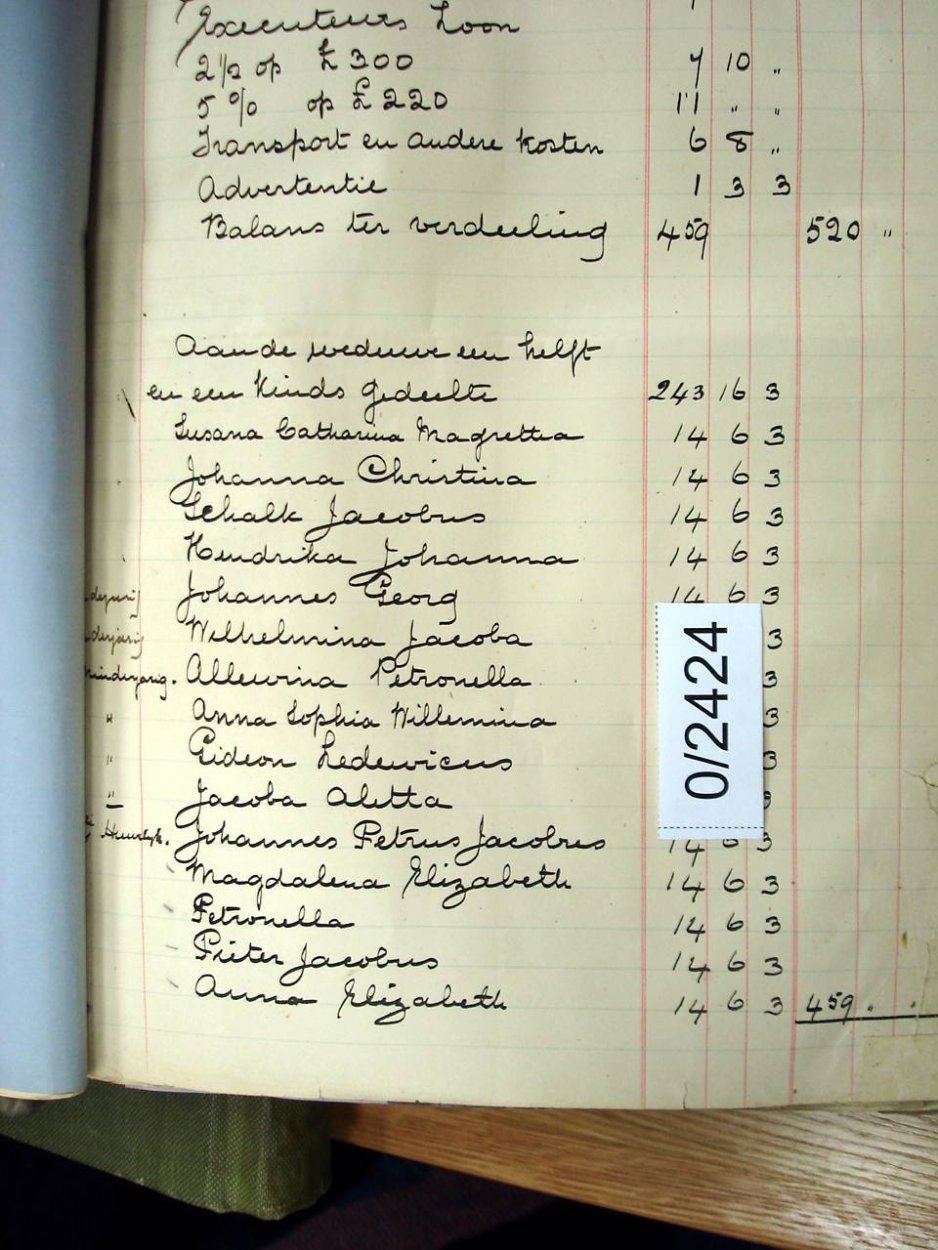 Executeurs Loon
2½ op £ 300 7 10 „
5 % op £ 220 11 „ „
Transport en andere kosten 6 8 „
Advertentie 1 3 3
Balans ter verdeeling 459 520 „
Aan de weduwe een helft
en een Kinds gedeelte 243 16 3
Susana Catharina Magretta 14 6 3
Johanna Christina 14 6 3
Schalk Jacobus 14 6 3
Hendrika Johanna 14 6 3
Johannes Georg 14 6 3
Wilhelmina Jacoba 3
minderjarig. Allewina Petronella 3
" Anna Sophia Willemina 3
" Gideon Ledewicus 3
" Jacoba Aletta 3
Johannes Petrus Jacobus 14 6 3
Magdalena Elizabeth 14 6 3
Petronella 14 6 3
Pieter Jacobus 14 6 3
Anna Elizabeth 14 6 3 459 . .
0/2424